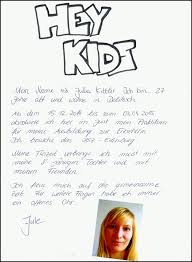 HEY
KIDS
Mein Name ist Julia Ich bin 27
Jahre alt und wohne in
Ab dem 15.12. bis zum
ich hier im mein Praktikum
für meine Ausbildung zur Erzieherin.
Ich besuche das
Meine Freizeit verbringe ich meist mit
meiner Tochter und mit
meinen Freunden.
Ich freu mich auf die gemeinsame
Zeit für weitere Fragen habe ich immer
ein offenes Ohr.
Jule